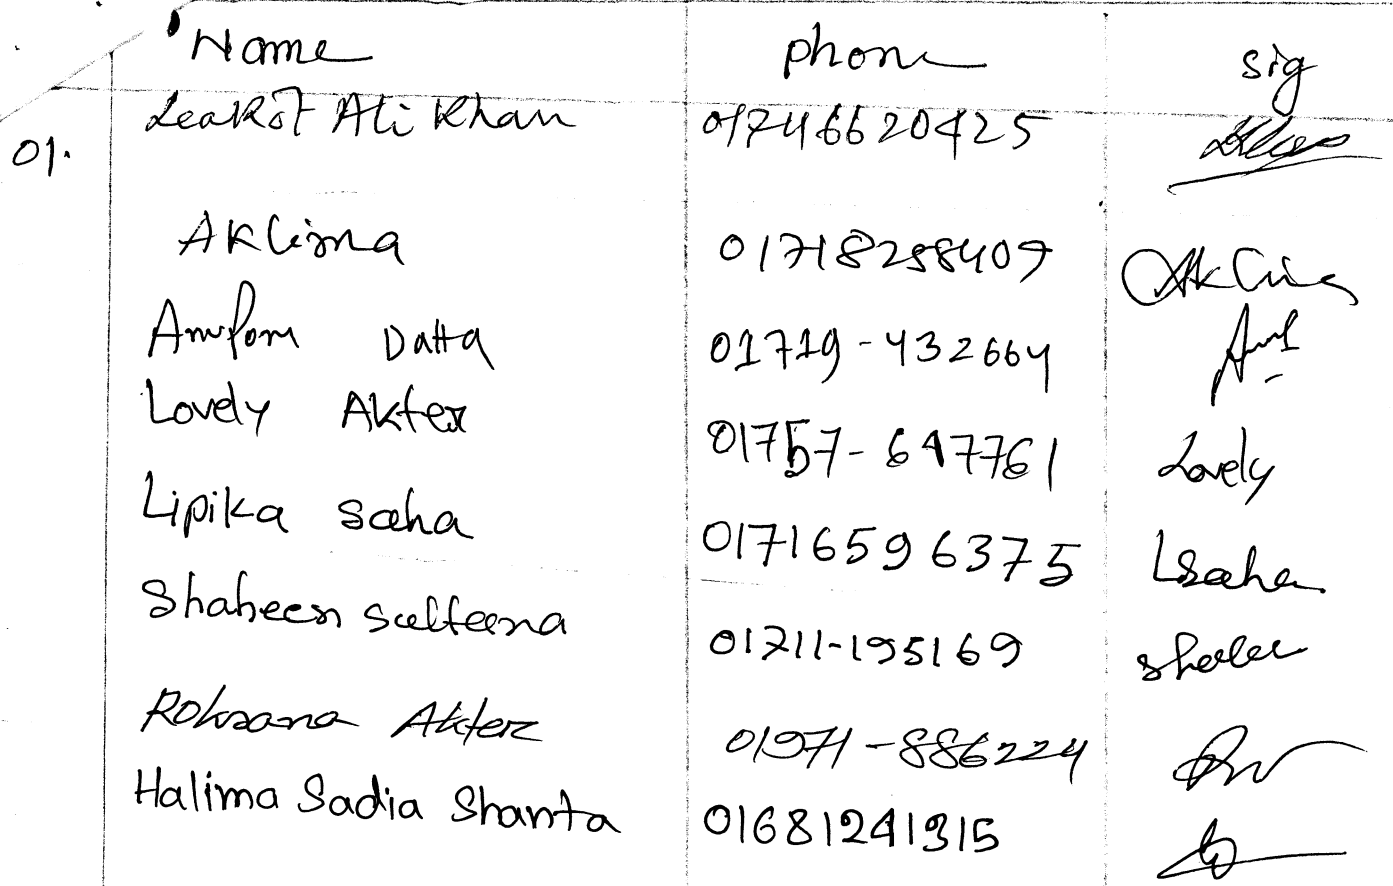 Name phone sig
01. Leakot Ali Khan 01746620425
Aklima 01718258409 Aklima
Anupom Datta 01719-432664
Lovely Akter 01757-647761 Lovely
Lipika Saha 01716596375 LSaha
Shaheen Sulteana 01711-195169
Roksana Akter 01971-886224
Halima Sadia Shanta 01681241315